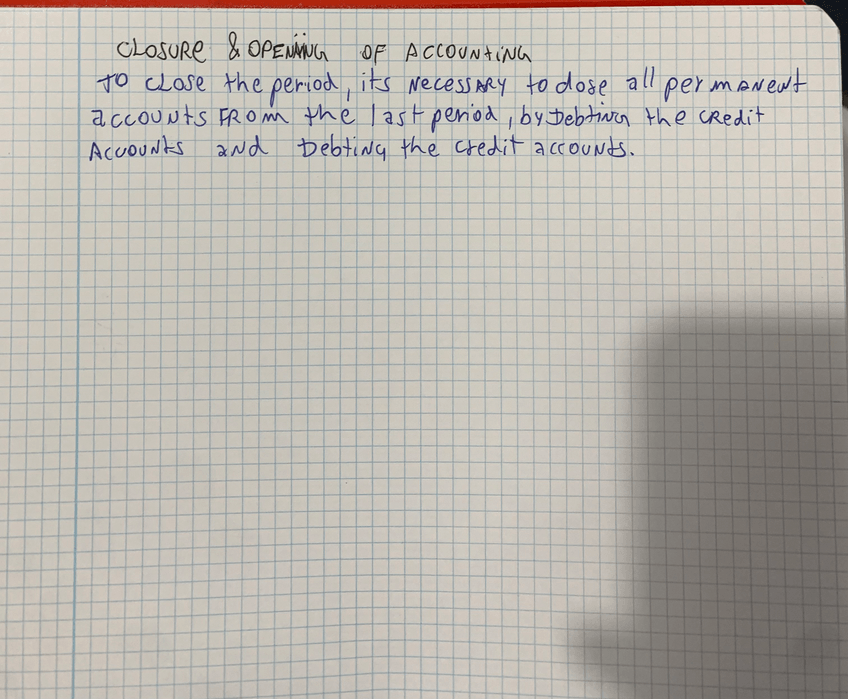 CLOSURE & OPENING OF ACCOUNTING
TO CLOSE the period, its NECESSARY to close all permanent
accounts FROM the last period, by Debting the CRedit
ACCOUNTS and Debting the credit accounts.